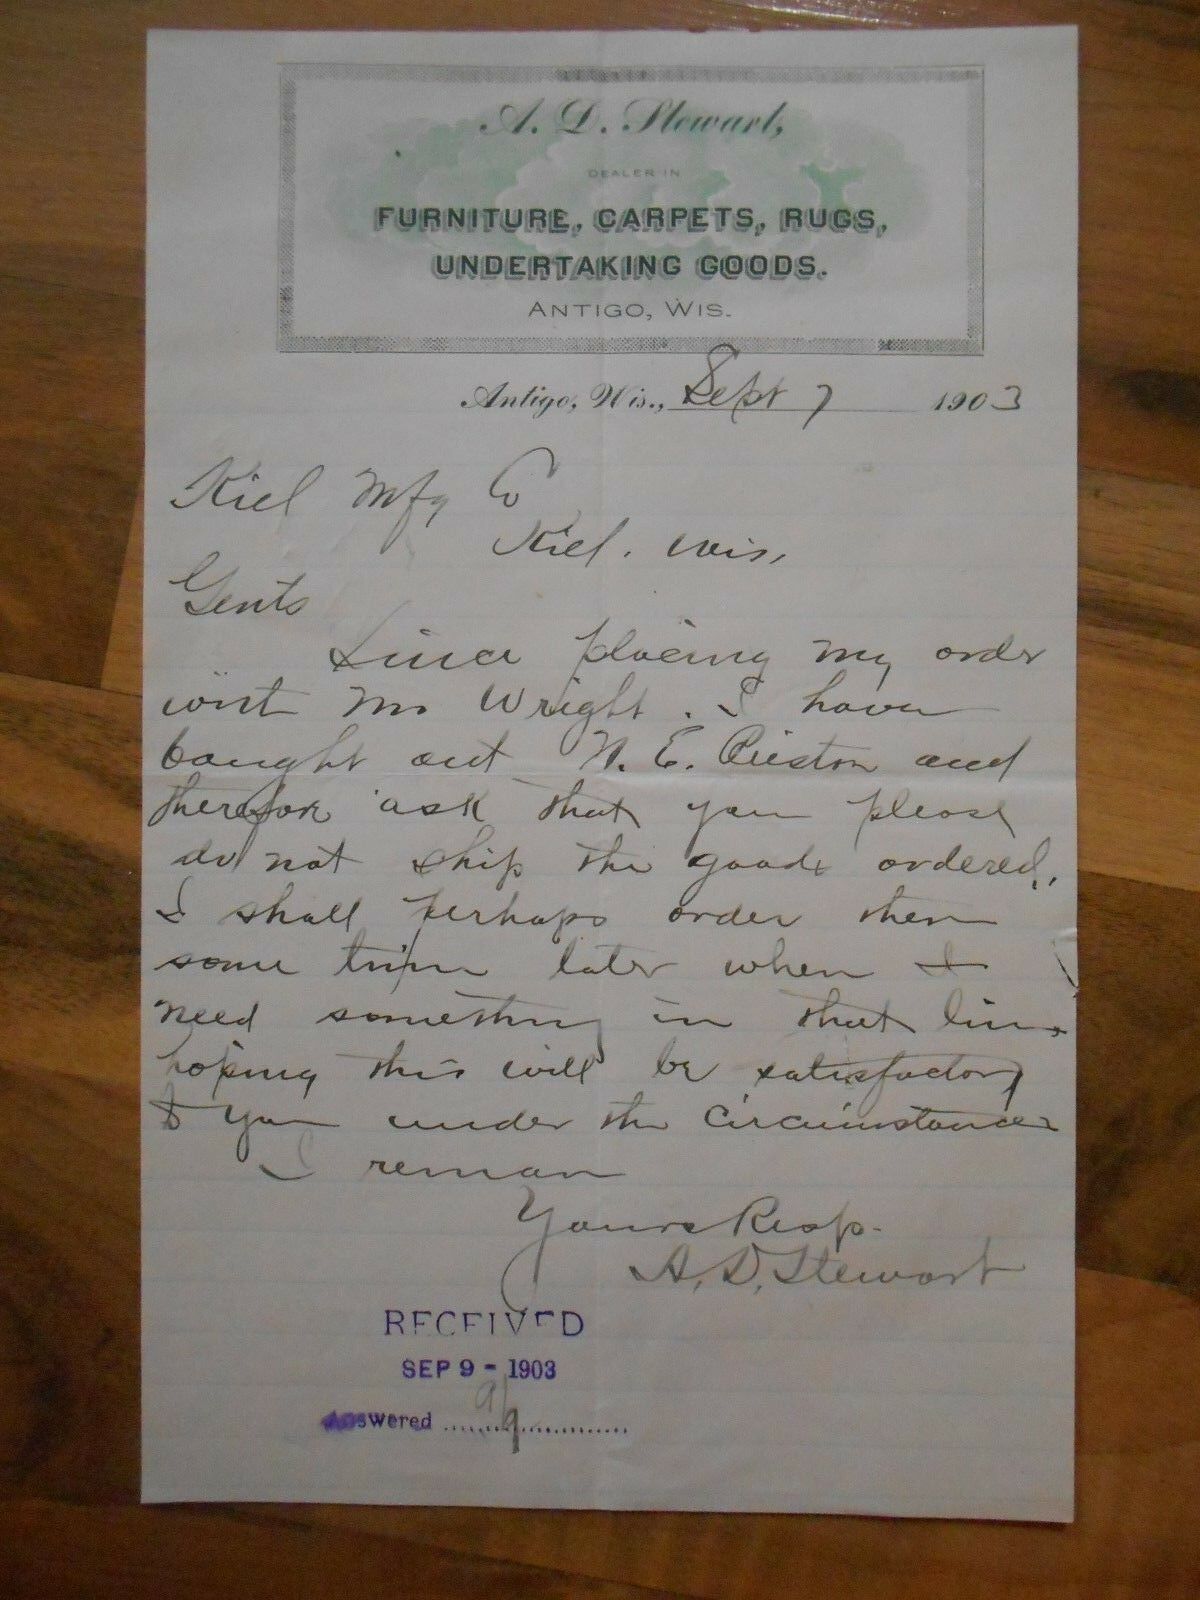 A. D. Stewart,
DEALER IN
FURNITURE, CARPETS, RUGS,
UNDERTAKING GOODS.
ANTIGO, WIS.
Antigo, Wis., Sept 7 1903
Kiel Mfg Co
Kiel. Wis,
Gents
Since placing my order
with Mr Wright. I have
bought out N. E. and
therefor ask that you please
do not ship the goods ordered.
I shall perhaps order them
some time later when I
need something in that line
hoping this will be satisfactory
to you under the circumstances
I remain
Yours Resp.
A. D. Stewart
RECEIVED
SEP 9 - 1903
Answered 9/9